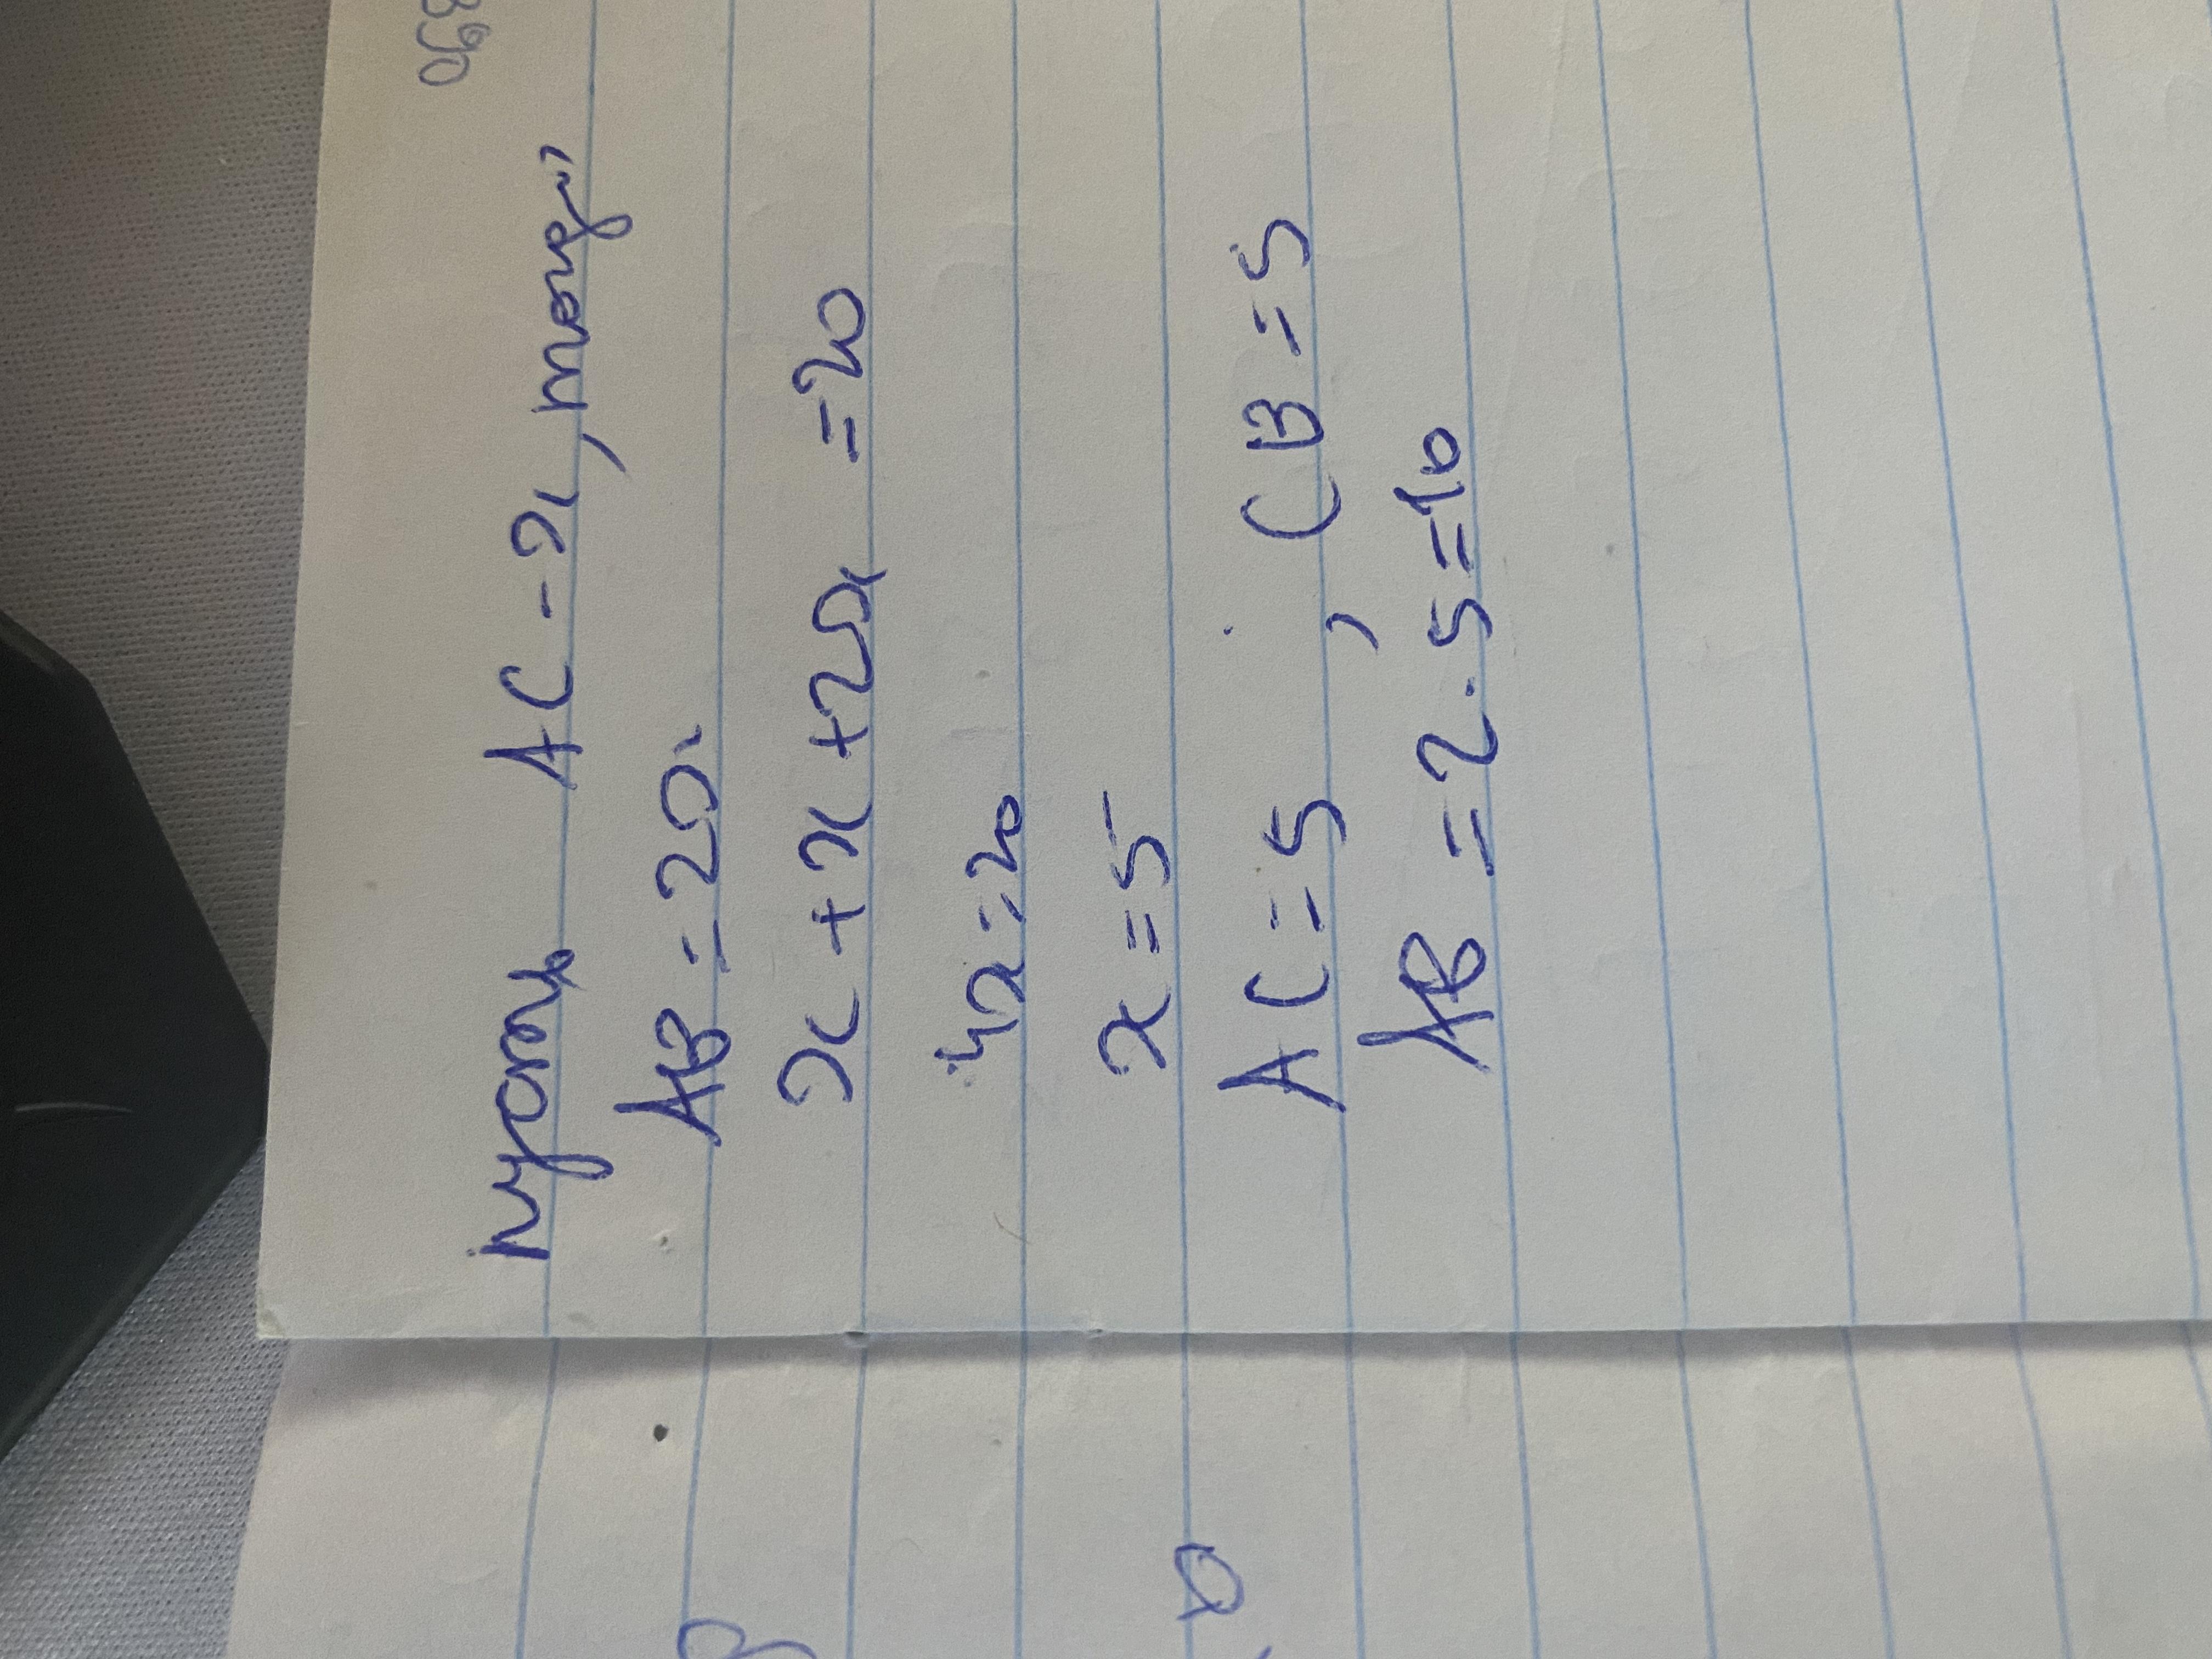 Нусть AC = x, тогда
AB = 2x.
x + x + 2x = 20
4x = 20
x = 5
AC = 5, CB = 5
AB = 2 · 5 = 10